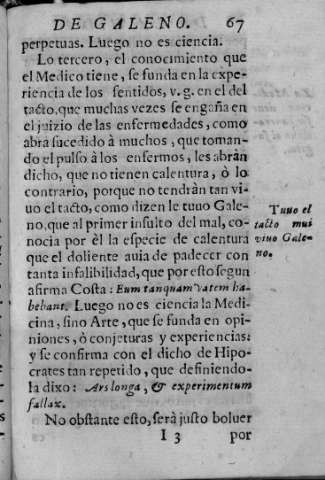 DE GALENO. 67
perpetuas. Luego no es ciencia.
Lo tercero, el conocimiento que
el Medico tiene, se funda en la expe-
riencia de los sentidos, v.g. en el del
tacto, que muchas vezes se engaña en
el juizio de las enfermedades, como
abra sucedido à muchos, que toman-
do el pulso à los enfermos, les abràn
dicho, que no tienen calentura, ò lo
contrario, porque no tendràn tan vi-
uo el tacto, como dizen le tuuo Gale-
no, que al primer insulto del mal, co-
nocia por èl la especie de calentura
que el doliente auia de padecer con
tanta infalibilidad, que por esto segun
afirma Costa: Eum tanquam vatem ha-
bebant. Luego no es ciencia la Medi-
cina, sino Arte, que se funda en opi-
niones, ò conjeturas y experiencias:
y se confirma con el dicho de Hipo-
crates tan repetido, que definiendo-
la dixo: Ars longa, & experimentum
fallax.
No obstante esto, serà justo boluer
I 3 por
Tuuo el
tacto mui
viuo Gale-
no.